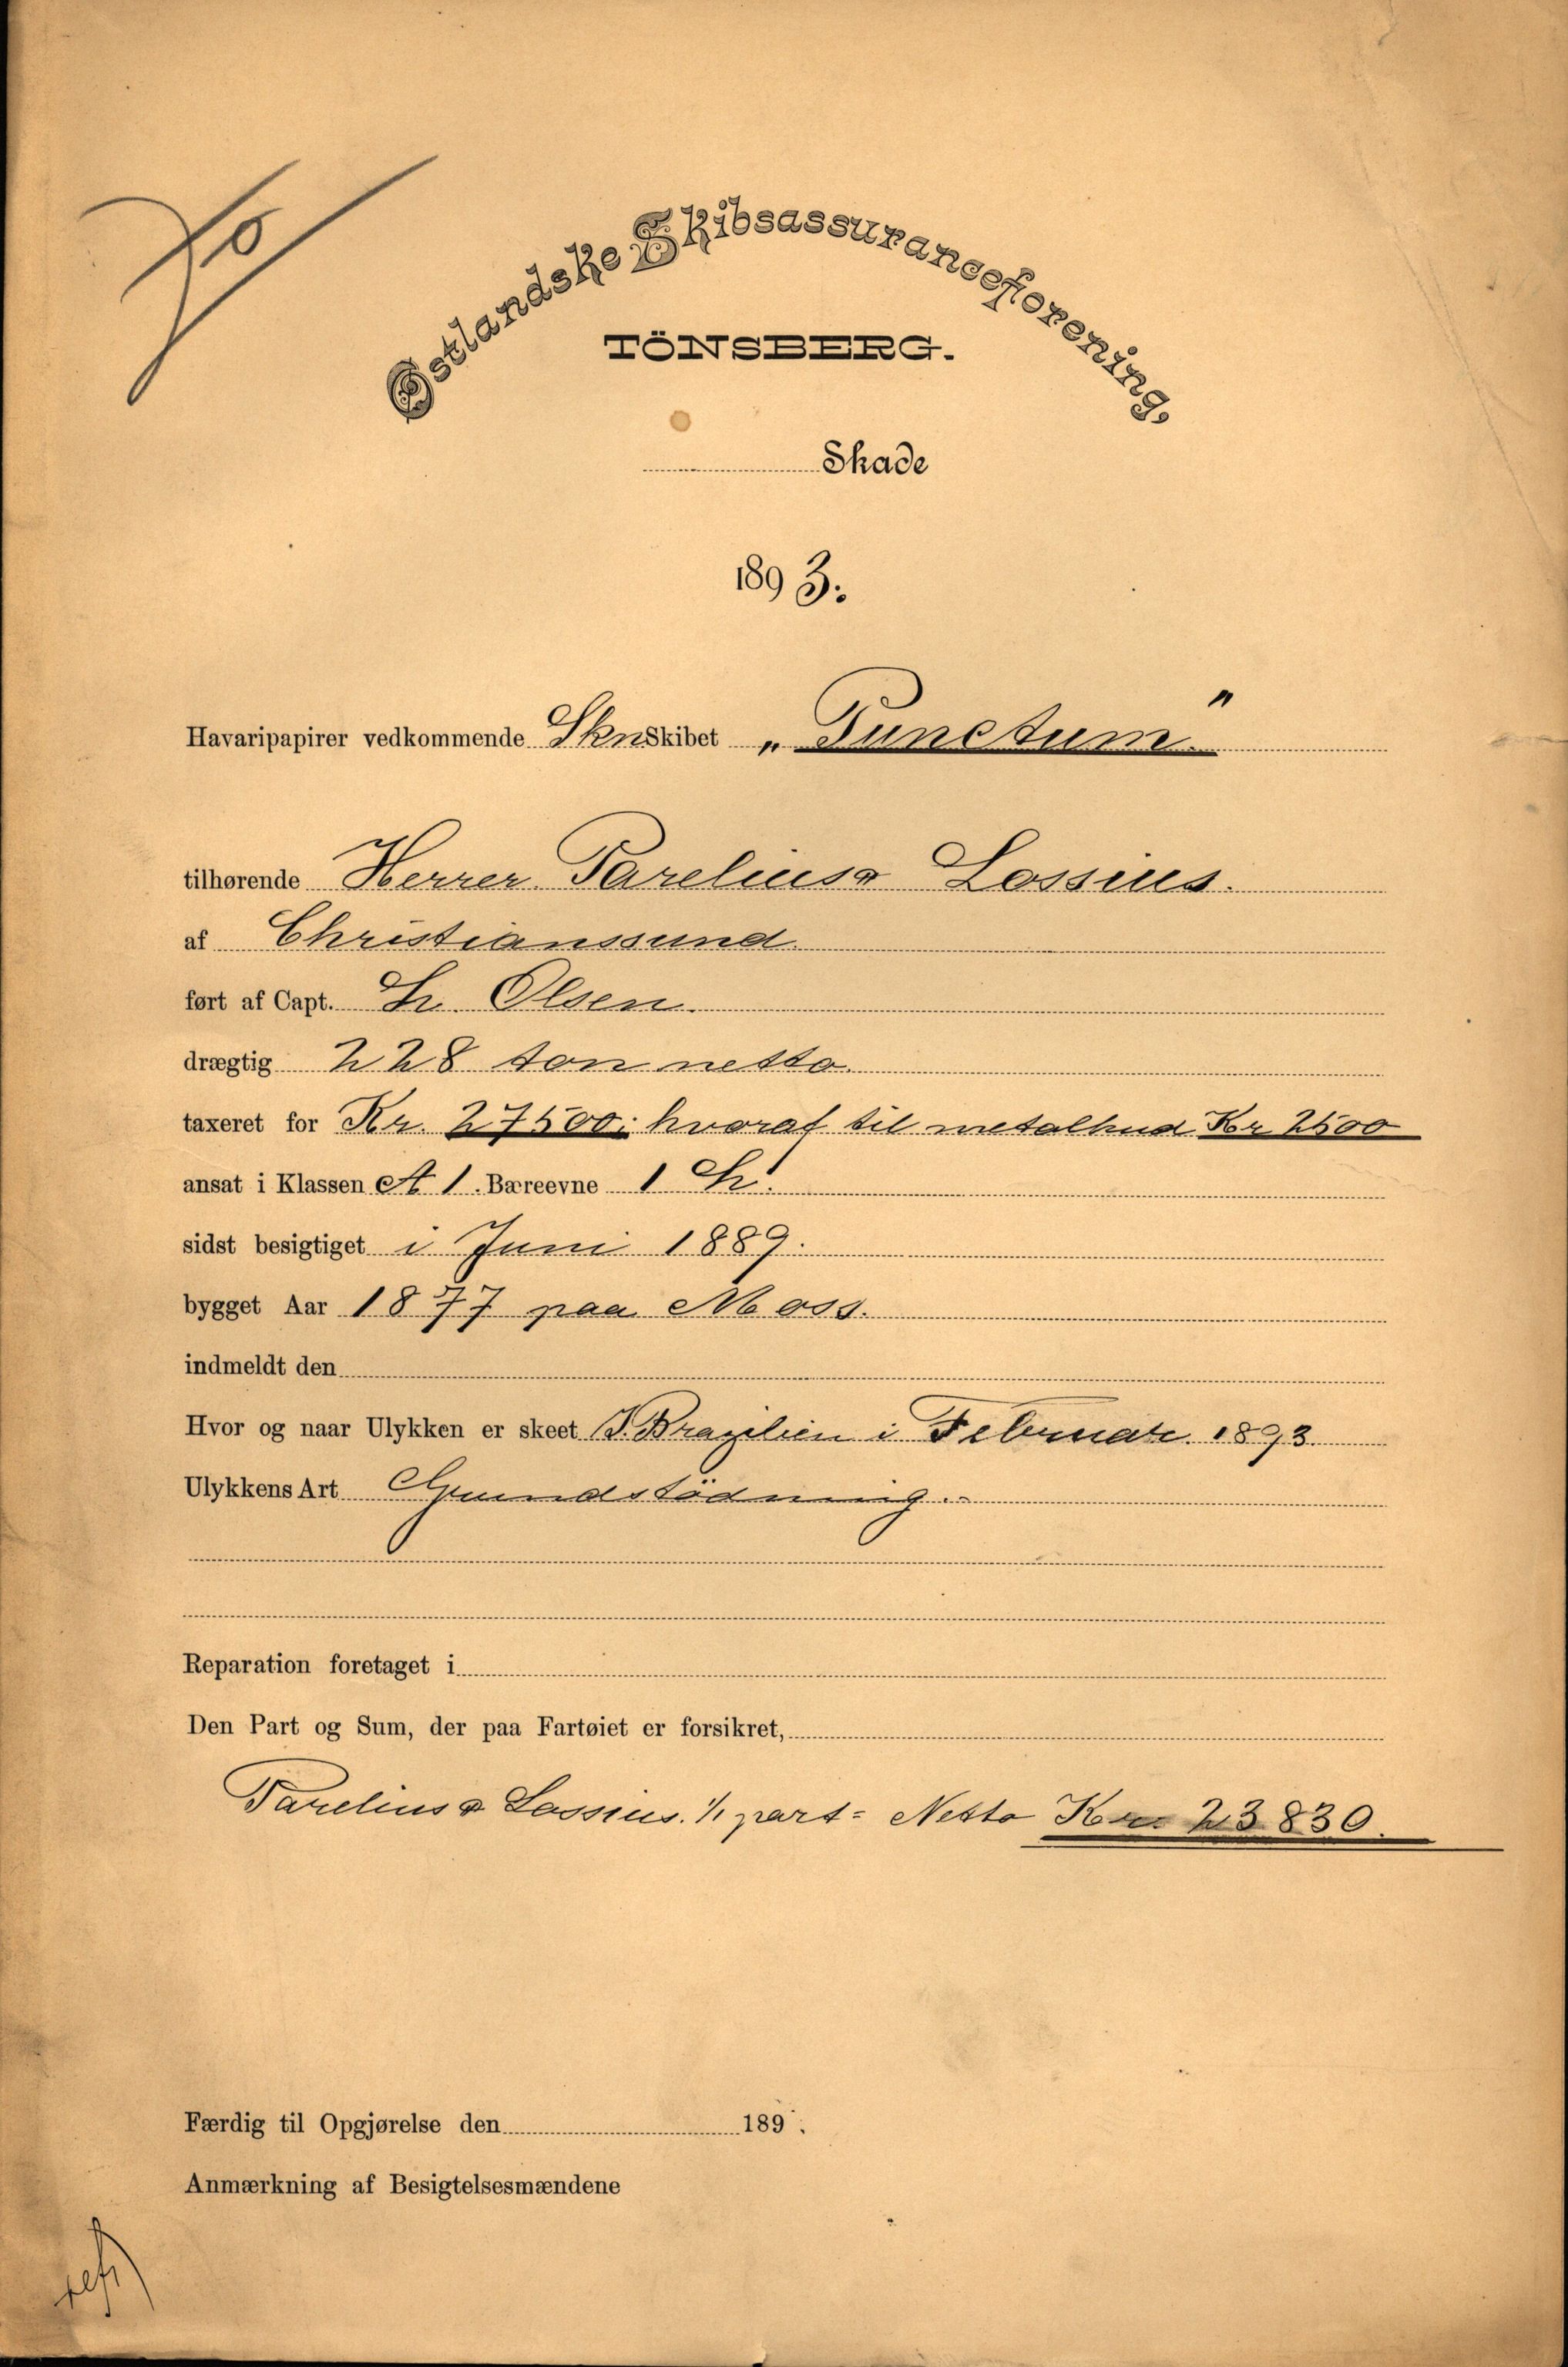 Østlandske Skibsassuranceforening,
TÖNSBERG.
Skade
1893.
Havaripapirer vedkommende SknSkibet „Punctum"
tilhørende Herrer Parelius & Lossius.
af Christianssund.
ført af Capt. L. Olsen.
drægtig 228 ton netto.
taxeret for Kr. 27500; hvoraf til metalhud Kr 2500
ansat i Klassen A 1. Bæreevne 1 L.
sidst besigtiget i Juni 1889.
bygget Aar 1877 paa Moss.
indmeldt den
Hvor og naar Ulykken er skeet Brazilien i Februar. 1893.
Ulykkens Art Grundstödning.
Reparation foretaget i
Den Part og Sum, der paa Fartøiet er forsikret,
Parelius & Lossius. 1/1 part = Netto Kr 23830.
Færdig til Opgjørelse den 189 .
Anmærkning af Besigtelsesmændene